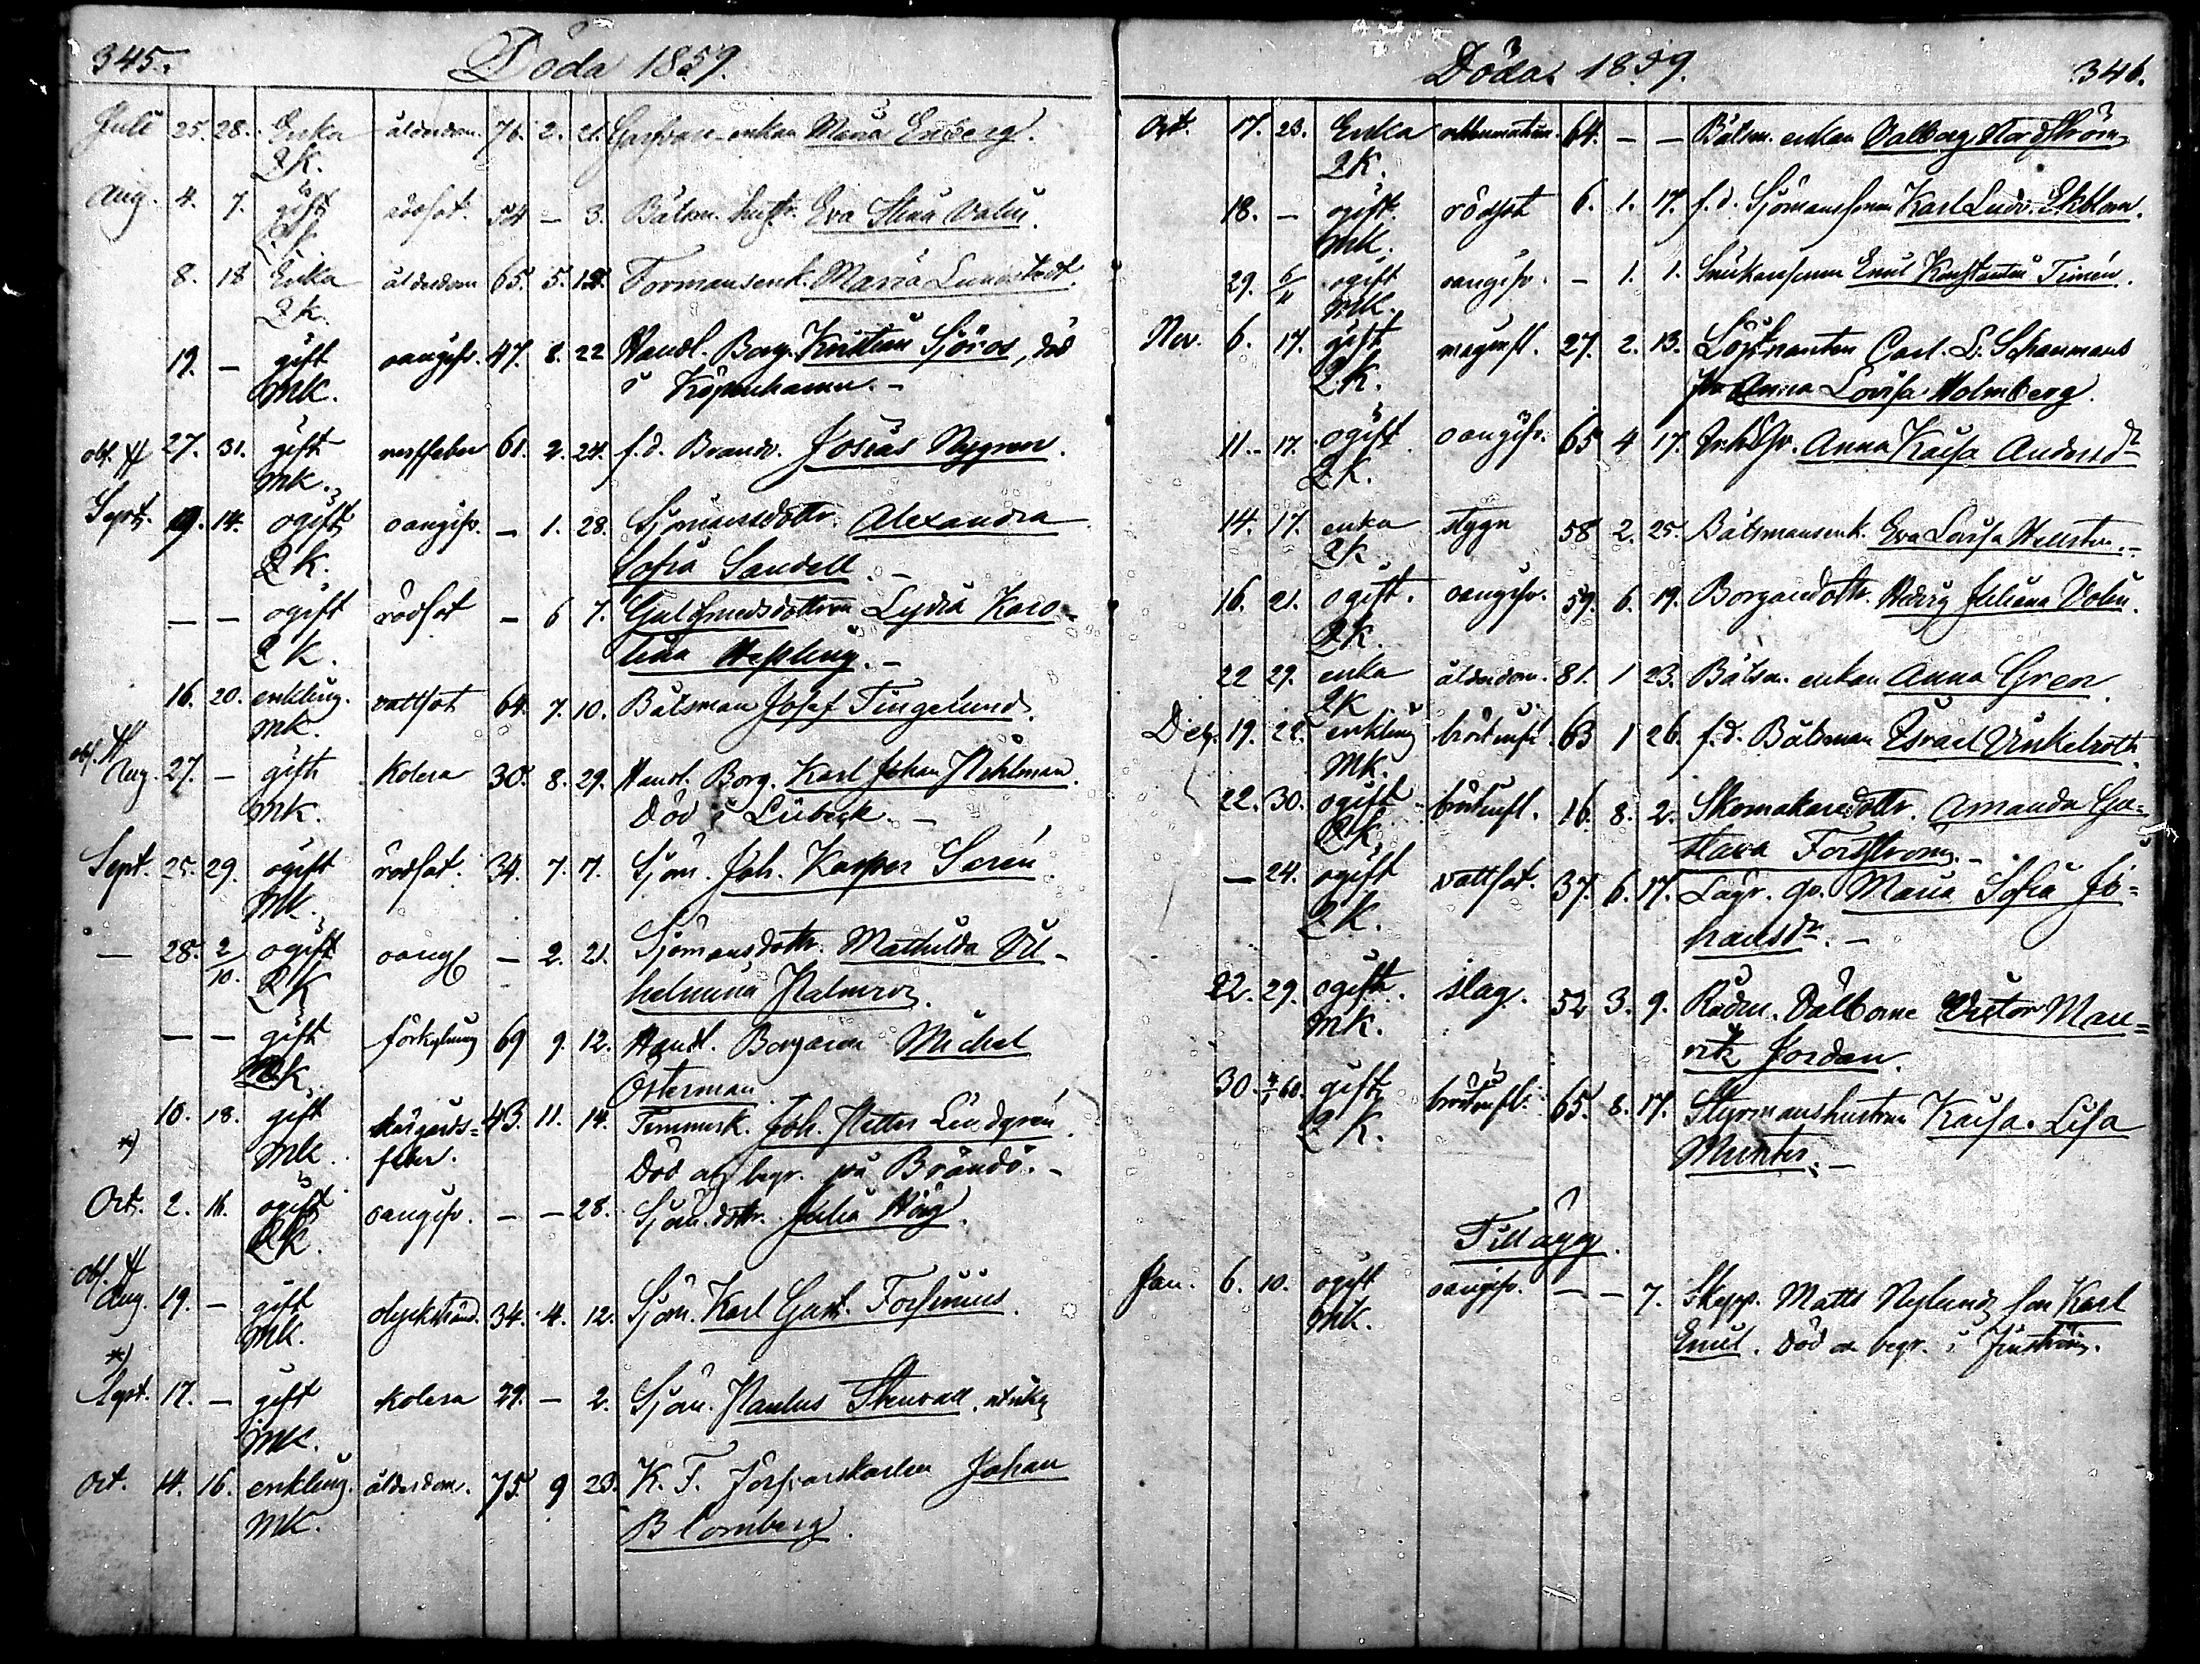 345.
Döda 1859.
Juli 25. 28. Enka ålderdom. 76. 2. 21. enkan Maria Enberg.
QK.
Aug. 4. 7. gift rödsot. 54 – 3. Båtsm. hustr. Eva Stina Valin.
QK
8. 18 Enka ålderdom 65. 5. 18. Formansenk. Maria Lundstedt.
QK.
19. – gift oangifv. 47. 8. 22 Handl. Borg. Kristian Sjöros, död
MK. i Köpenhamn. –
obs. # 27. 31. gift 61. 2. 24. f.d. Brandv. Josias Nygren.
MK.
Sept. 9. 14. ogift oangifv. – 1. 28. Sjömansdottr. Alexandra
QK. Sofia Sandell. –
– – ogift rödsot – 6 7. Gulsmedsdottren Lydia Karo-
QK. lina Hessling. –
16. 20. enkling. vattsot 64. 7. 10. Båtsman Josef Tingelund.
MK.
obs. #
Aug. 27. – gift Kolera 30. 8. 29. Handl. Borg. Karl Johan Pehlman.
MK. Död i Lübeck. –
Sept. 25. 29. ogift rödsot. 34. 7. 7. Sjöm. Joh. Kasper Serén.
MK.
– 28. 2/10. ogift oangf – 2. 21. Sjömansdottr. Mathilda Vil-
QK helmina Palmroz.
– – gift förkylning 69 9. 12. Handl. Borgaren Michel
MK. Österman.
10. 18. gift skärgårds- 43. 11. 14. Timmerk. Joh. Petter Lindgrén.
*) MK. feber. Död och begr. på Brändö. –
Oct. 2. 16. ogift oangifv. – – 28. Sjöm. dottr. Julia Höög.
QK.
obs. #
Aug. 19. – gift olyckshänd. 34. 4. 12. Sjöm. Karl Gust. Forsenius.
MK.
*)
Sept. 17. – gift kolera 29. – 2. Sjöm. Paulus Stenvall, utrikes
MK.
Oct. 14. 16. enkling. ålderdom. 75. 9 23. K. F. Försvarskarlen Johan
MK. Blomberg.
Döda 1859.
346.
Oct. 17. 23. Enka 64. – – Båtsm. enkan Valborg Nordström
QK.
18. – ogift. rödsot 6. 1. 17. f.d. Sjömanssonen Karl Ludv. Ekblom.
MK.
29. 6/11 ogift oangifv. – 1. 1. Snickaresonen Emil Konstantin Timén.
MK.
Nov. 6. 17. gift maginfl. 27. 2. 13. Löjtnanten Carl. L. Schaumans
QK. fru Anna Lovisa Holmberg.
11. 17. ogift oangifv. 65 4 17. Anna Kaisa Andersdr
QK.
14. 17. enka stygn 58 2. 25. Båtsmansenk. Eva Lovisa Hellsten. –
QK
16. 21. ogift. oangifv. 59. 6. 19. Borgaredottr. Hedvig Juliana Volin.
QK.
22 27. enka ålderdom. 81. 1 23. Båtsm. enkan Anna Gren.
QK
Dec. 19. 28. enkling bröstinfl. 63 1 26. f.d. Båtsman Israel Vinkelroth.
MK.
22. 30. ogift bröstinfl. 16. 8. 2. Skomakaredottr. Amanda Gu-
QK. stava Forsström. –
– 24. ogift vattsot. 37. 6. 17. Lägr. qv. Maria Sofia Jo-
QK. hansdr. –
22. 29. ogift. slag. 52 3. 9. Rådm. Välborne Victor Mau-
MK. ritz Jordan.
30. 4/1 60. gift bröstinfl. 65. 8. 17. Styrmanshustrun Kaisa Lisa
QK. Munter. –
Tillägg.
Jan. 6. 10. ogift oangifv. – – 7. Skepp. Matts Nylunds son Karl
MK. Emil. Död o. begr. i Finström.